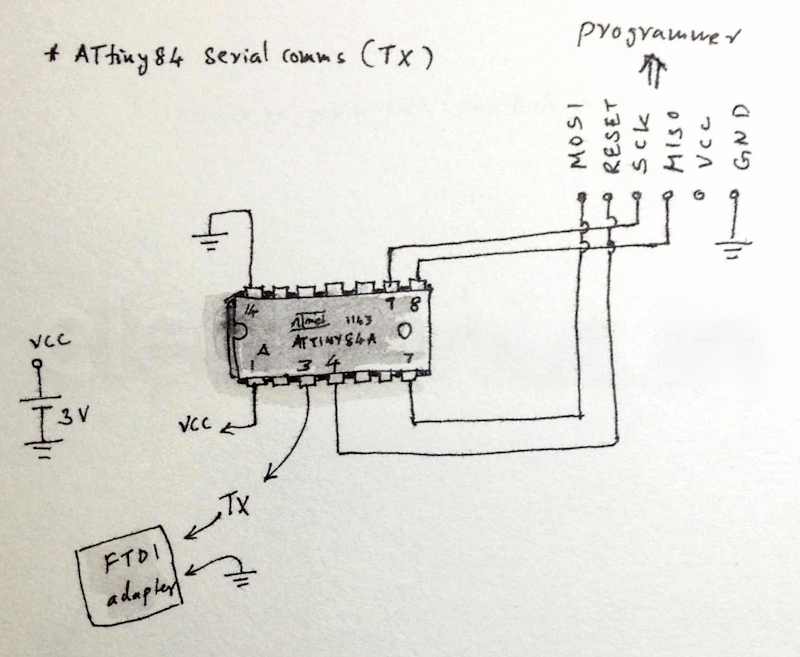 * ATtiny84 Serial comms (TX)
programmer
MOSI
RESET
SCK
MISO
VCC
GND
14
9 8
Atmel 1143
ATTINY84A
1 3 4 7
VCC
3V
VCC
TX
FTDI
adapter